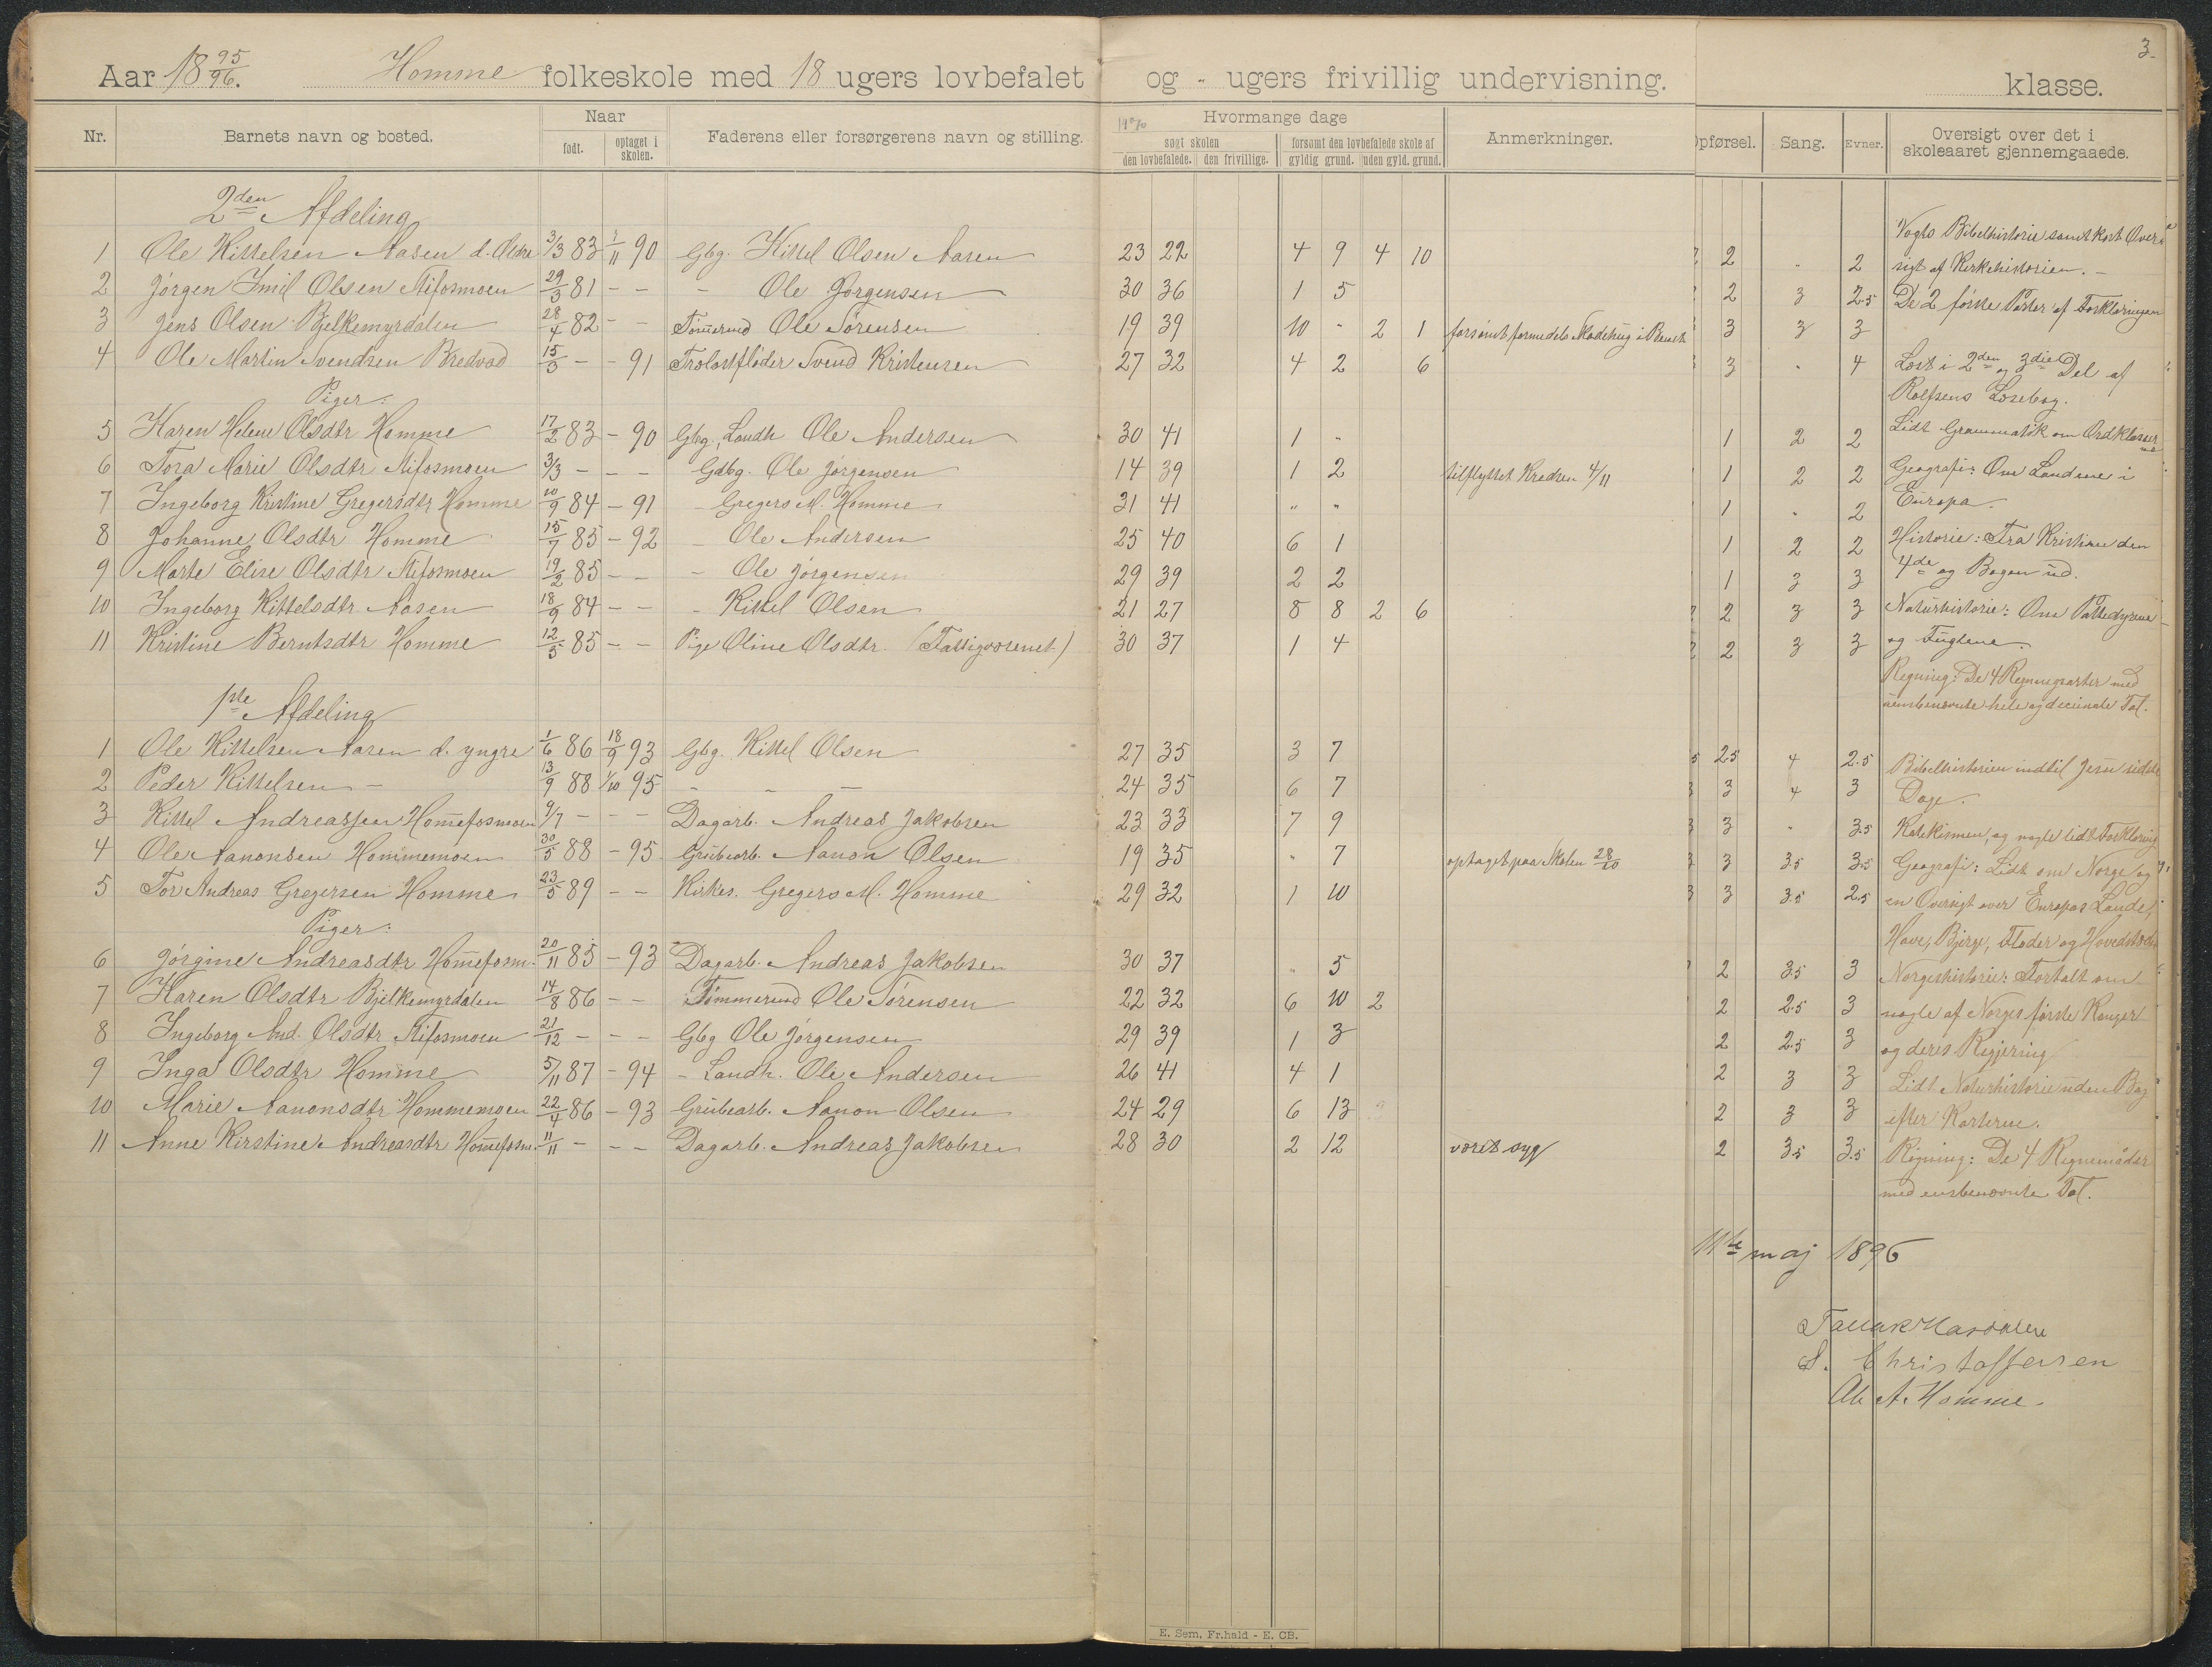 3
Aar 18 95/96. Homme folkeskole med 18 ugers lovbefalet og - ugers frivillig undervisning. klasse.
Nr. Barnets navn og bosted. Naar født. optaget i skolen. Faderens eller forsørgerens navn og stilling. Hvormange dage søgt skolen den lovbefalede. den frivillige. forsømt den lovbefalede skole af gyldig grund. uden gyld. grund. Anmerkninger. Opførsel. Sang. Evner. Oversigt over det i skoleaaret gjennemgaaede.
2den Afdeling
1 Ole Kittelsen Aasen d. Ældre 3/3 83 90 Gbg. Kittel Olsen Aasen 23 22 4 9 4 10 2 2
2 Jørgen Imil Olsen Stifosmoen 29/3 81 - - - Ole Jørgensen 30 36 1 5 2 3 2.5
3 Jens Olsen Bjelkemyrdalen 28/4 82 - - Tømmermd Ole Sørensen 19 39 10 " 2 1 3 3 3
4 Ole Martin Svendsen Bredvad 15/3 - - 91 Svend Kristensen 27 32 4 2 6 3 " 4
Piger:
5 Karen Helene Olsdtr Homme 17/2 83 - 90 Gbg. Landh. Ole Andersen 30 41 1 " 1 2 2
6 Tora Marie Olsdtr Stifosmoen 3/3 - - - Gdbg. Ole Jørgensen 14 39 1 2 tilflyttet Kredsen 4/11 1 2 2
7 Ingeborg Kristine Gregersdtr Homme 10/9 84 - 91 - Gregers M. Homme 31 41 " " 1 " 2
8 Johanne Olsdtr Homme 15/7 85 - 92 - Ole Andersen 25 40 6 1 1 2 2
9 Marte Elise Olsdtr Stifosmoen 19/2 85 - - - Ole Jørgensen 29 39 2 2 1 3 3
10 Ingeborg Kittelsdtr Aasen 18/9 84 - - - Kittel Olsen 21 27 8 8 2 6 2 3 3
11 Kristine Berntsdtr Homme 12/5 85 - - Pige Oline Olsdtr. (Fattigvæsenet) 30 37 1 4 2 3 3
1ste Afdeling
1 Ole Kittelsen Aasen d. yngre 1/6 86 18/9 93 Gbg. Kittel Olsen 27 35 3 7 2.5 4 2.5
2 Peder Kittelsen - 13/9 88 1/10 95 - - - 24 35 6 7 3 4 3
3 Kittel Andreassen Hommefosmoen 9/7 - - - Dagarb. Andreas Jakobsen 23 33 7 9 3 " 3.5
4 Ole Aanonsen Hommemoen 30/5 88 - 95 Grubearb. Aanon Olsen 19 35 " 7 optaget paa Skolen 28/10 3 3.5 3.5
5 Tor Andreas Gregersen Homme 23/5 89 - - Kirkes. Gregers M. Homme 29 32 1 10 3 3.5 2.5
Piger:
6 Jørgine Andreasdtr Hommefosm. 20/11 85 - 93 Dagarb. Andreas Jakobsen 30 37 " 5 2 3.5 3
7 Karen Olsdtr Bjelkemyrdalen 14/8 86 - - Tømmermd Ole Sørensen 22 32 6 10 2 2 2.5 3
8 Ingeborg And. Olsdtr Stifosmoen 21/12 - - - Gbg Ole Jørgensen 29 39 1 3 2 2.5 3
9 Inga Olsdtr Homme 5/11 87 - 94 - Landh. Ole Andersen 26 41 4 1 2 3 3
10 Marie Aanonsdtr Hommemoen 22/4 86 - 93 Grubearb. Aanon Olsen 24 29 6 13 2 3 3
11 Anne Kirstine Andreasdtr Hommefosm. 11/11 - - - Dagarb. Andreas Jakobsen 28 30 2 12 været syg 2 3.5 3.5
Vogts Bibelhistorie samt kort Over-
sigt af Kirkehistorien. -
De 2 første Parter af Forklaringen
Læst i 2den og 3die Del af
Rolfsens Læsebog.
Lidt Grammatik om Ordklasserne
Geografi: Om Landene i
Europa.
Historie: Fra Kristian den
4de og Bogen ud.
Naturhistorie: Om Pattedyrene
og Fuglene.
Regning: De 4 Regningsarter med
uensbenævnte hele og decimale Tal.
Bibelhistorien indtil Jesu sidste
Dage.
Katekismen, og nogle lidt Forklaring
Geografi: Lidt om Norge og
en Oversigt over Europas Lande,
Have, Bjerge, Floder og Hovedstæder
Norgeshistorie: Fortalt om
nogle af Norges første Konger
og deres Regjering
Lidt Naturhistorie uden Bog
efter Karterne.
Regning: De 4 Regnemåder
med ensbenævnte Tal.
11te maj 1896
S. Christoffersen
Ole A. Homme.
E. Sem, Fr.hald - E. CB.